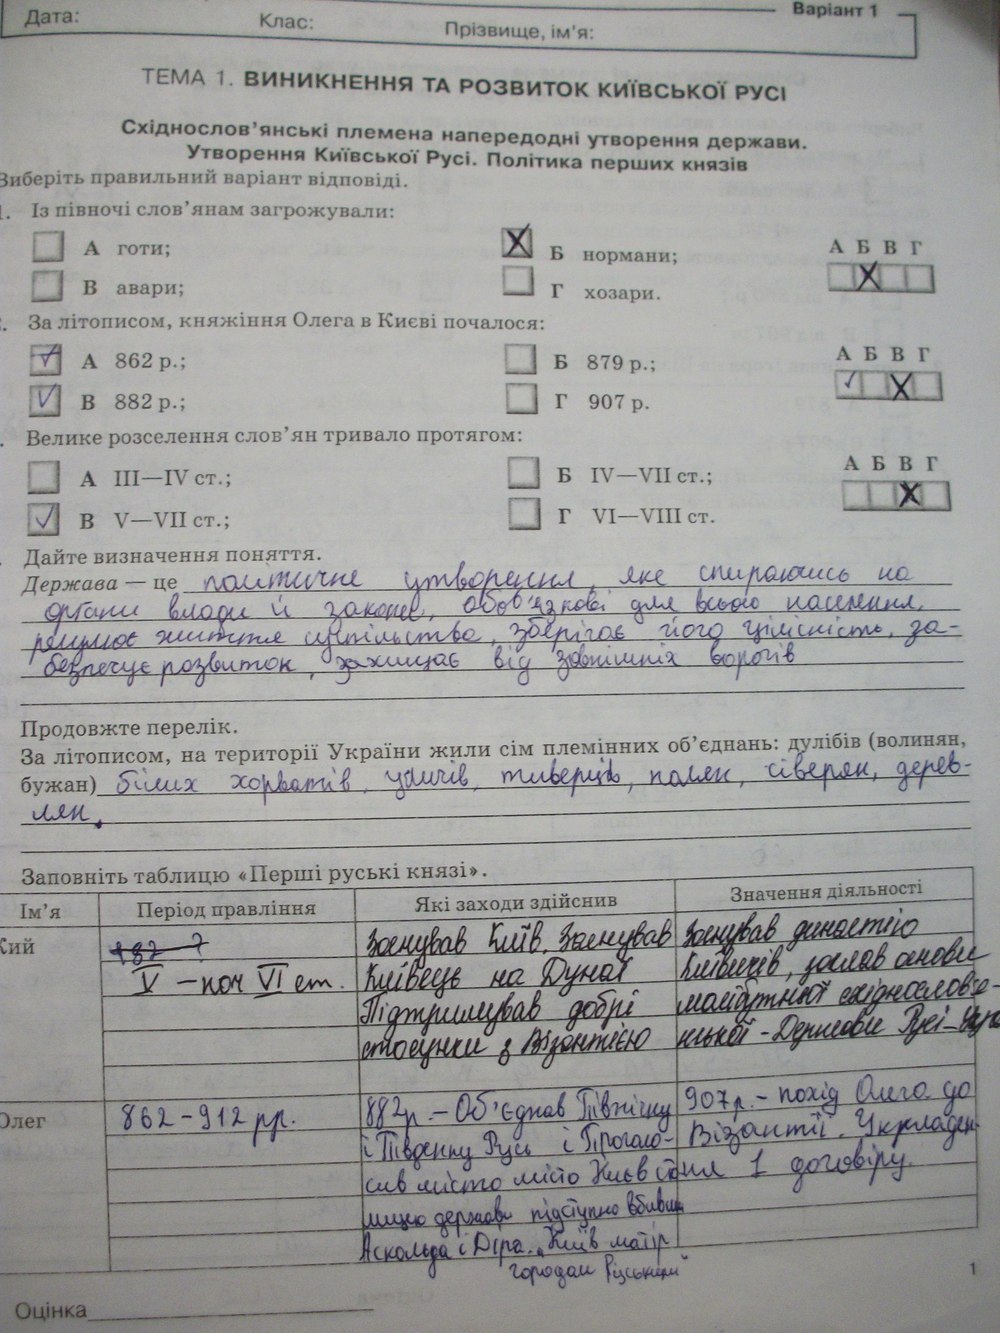 Варіант 1
Дата:
Клас:
Прізвище, ім'я:
ТЕМА 1. ВИНИКНЕННЯ ТА РОЗВИТОК КИЇВСЬКОЇ РУСІ
Східнослов'янські племена напередодні утворення держави.
Утворення Київської Русі. Політика перших князів
Виберіть правильний варіант відповіді.
1. Із півночі слов'янам загрожували:
А готи; Б нормани; А Б В Г
В авари; Г хозари.
За літописом, княжіння Олега в Києві почалося:
А 862 р.; Б 879 р.; А Б В Г
В 882 р.; Г 907 р.
Велике розселення слов'ян тривало протягом:
А III—IV ст.; Б IV—VII ст.; А Б В Г
В V—VII ст.; Г VI—VIII ст.
Дайте визначення поняття.
Держава — це політичне утворення, яке спираючись на
органи влади й закони, обов'язкові для всього населення,
регулює життя суспільства, зберігає його цілісність, за-
безпечує розвиток, захищає від зовнішніх ворогів
Продовжте перелік.
За літописом, на території України жили сім племінних об'єднань: дулібів (волинян,
бужан) білих хорватів, уличів, тиверців, полян, сіверян, дерев-
лян.
Заповніть таблицю «Перші руські князі».
Ім'я Період правління Які заходи здійснив Значення діяльності
Кий 482-? Заснував Київ, Заснував Заснував династію
V – поч VI ст. Київець на Дунаї Києвичів, заклав основи
Підтримував добрі майбутньої східнослов'я-
стосунки з Візантією нської Держави Русі-
Олег 862-912 рр. 882р – Об'єднав Північну 907р.- похід Олега до
і Південну Русь і Проголо- Візантії. Укладен-
сив місто місто Київ сто ня 1 договіру.
лицю держави підступно вбивши
Аскольда і Діра. „Київ матір
городам Руським"
1
Оцінка